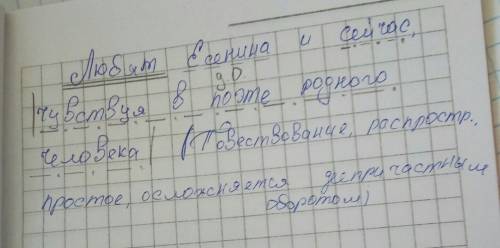 Любят Есенина и сейчас,
|чувствуя в поэте родного
человека| (Повествование, распростр.,
простое, осложняется деепричастным
оборотом)